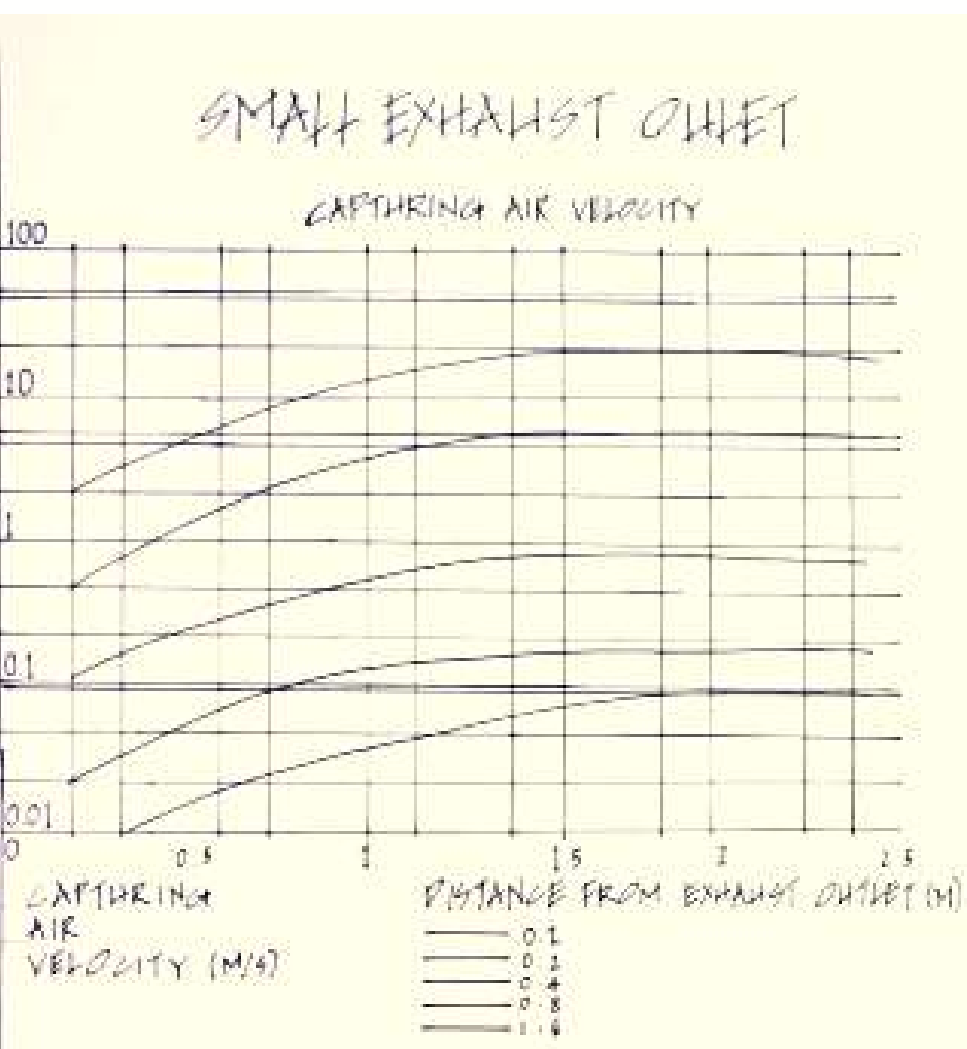 SMALL EXHAUST OUTLET
CAPTURING AIR VELOCITY
100
10
1
0.1
0.01
0
0.5
1
1.5
2
2.5
CAPTURING
AIR
VELOCITY (M/S)
DISTANCE FROM EXHAUST OUTLET (M)
0.1
0.4
0.8